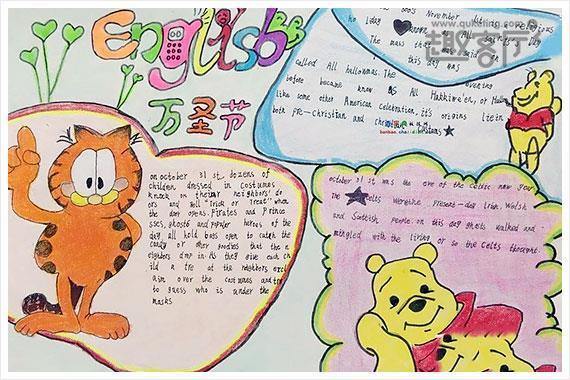 English
万圣节
on october 31 st dozens of
children dressed in costumes
knock on their neighbors' do
ors and yell "Trick or Treat" when
the door opens. Pirates and Prince
sses, ghosts and popular heroes of the
day all hold bags open to catch the
candy or other goodies that the n
eighbors drop in. As they give each ch
ild a tre at the neighbors excl
aim over the costumes and try
to guess who is under the
masks
November
1day known All
The mass that was said on
this day was
called All hallowmas. The evening
before became know as All Hakkiwe'en, or
like some other American Celebration, it's origins lie in
both pre-Christian and
october 31 st was the eve of the Celtic new year
The Celts were the present-day Irish, Welsh
and Scottish people on this day ghosts walked and
mingled with the living or so the Celts thought.
www.quketing.com
趣客厅